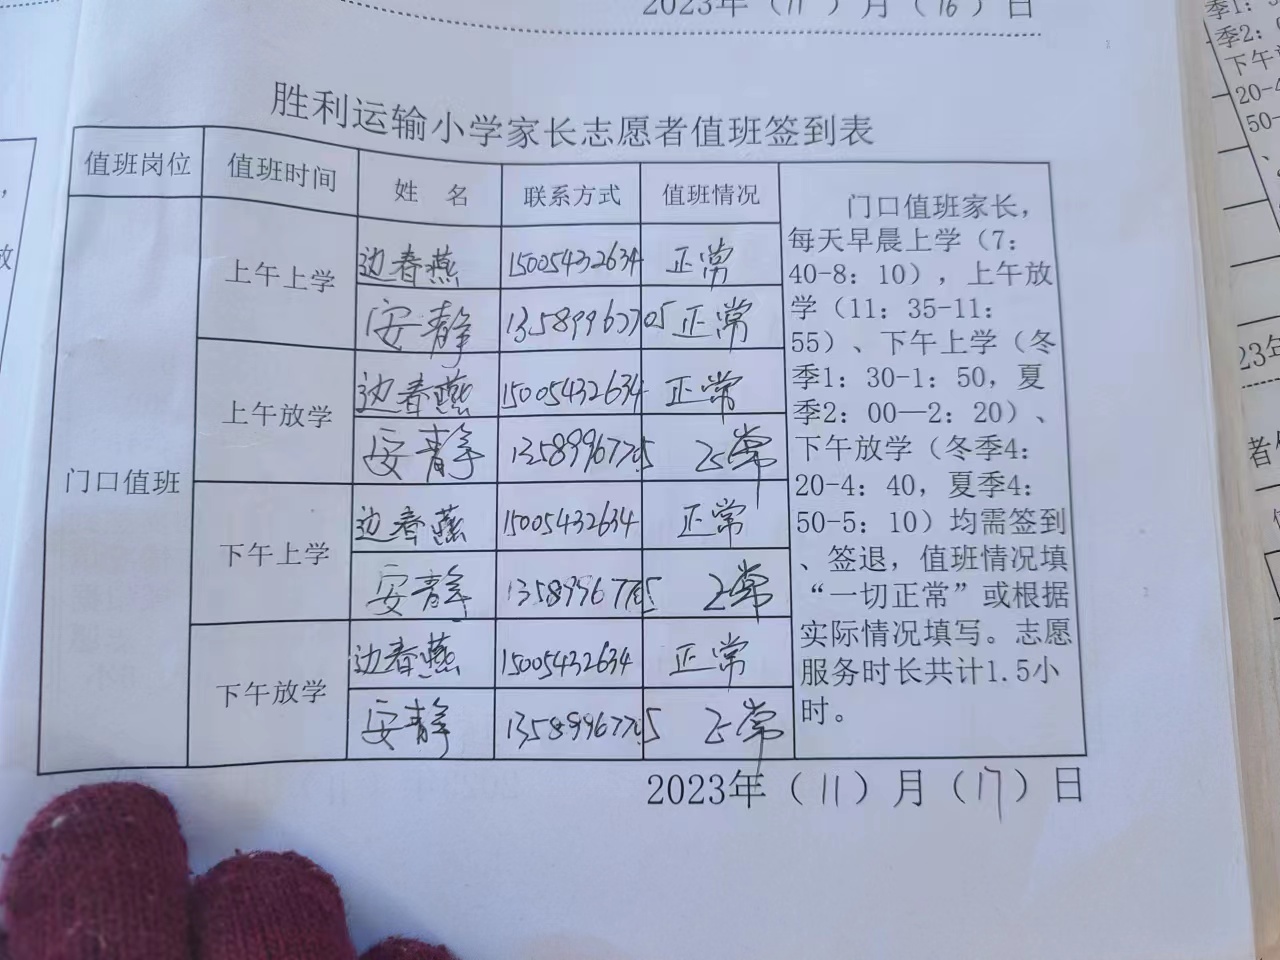 2023年（11）月（16）日
胜利运输小学家长志愿者值班签到表
值班岗位 值班时间 姓 名 联系方式 值班情况
门口值班
上午上学 边春燕 15005432634 正常
安静 13589967705 正常
上午放学 边春燕 15005432634 正常
安静 正常
下午上学 边春燕 15005432634 正常
安静 正常
下午放学 边春燕 15005432634 正常
安静 正常
门口值班家长，
每天早晨上学（7：
40-8：10），上午放
学（11：35-11：
55）、下午上学（冬
季1：30-1：50，夏
季2：00—2：20）、
下午放学（冬季4：
20-4：40，夏季4：
50-5：10）均需签到
、签退，值班情况填
“一切正常”或根据
实际情况填写。志愿
服务时长共计1.5小
时。
2023年（11）月（17）日
季2：
下午
20-4
50-
23年